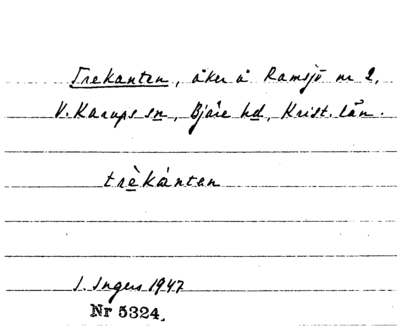 Trekanten, åker å Ramsjö nr 2,
V. Karups sn, Bjäre hd, Krist. län.
trèkànten
I. Ingers 1947
Nr 5324.